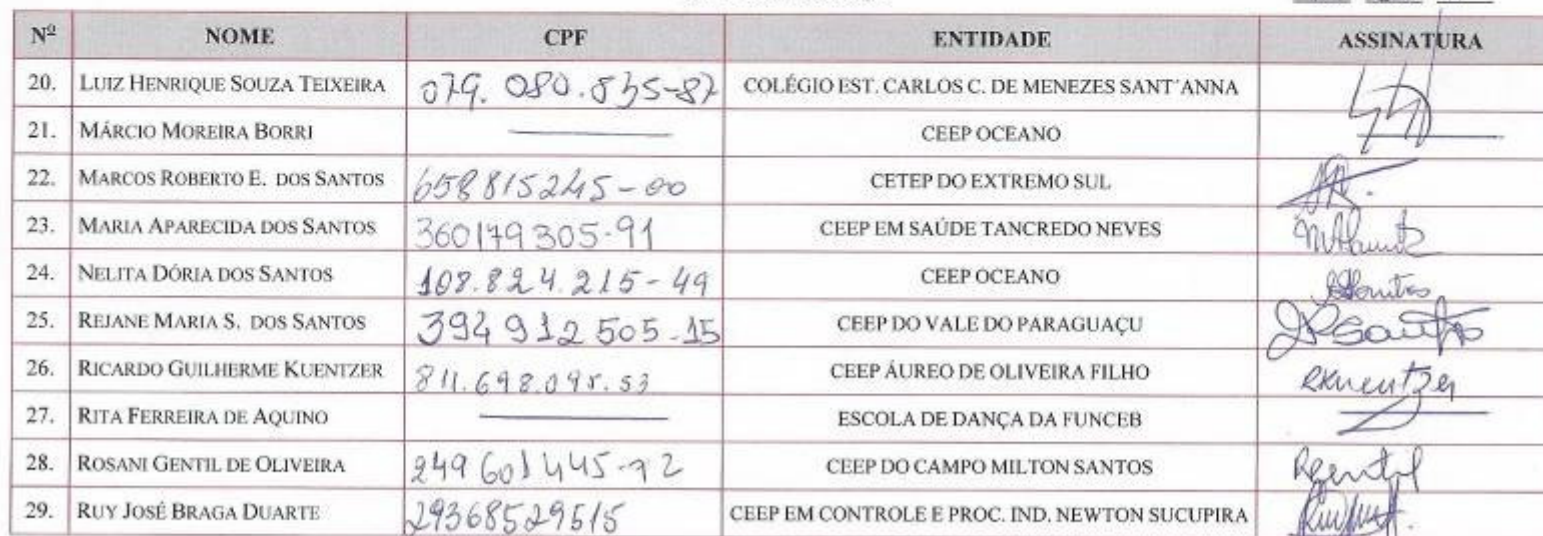 Nº NOME CPF ENTIDADE ASSINATURA
20. LUIZ HENRIQUE SOUZA TEIXEIRA 079.080.835-87 COLÉGIO EST. CARLOS C. DE MENEZES SANT´ANNA
21. MÁRCIO MOREIRA BORRI CEEP OCEANO
22. MARCOS ROBERTO E. DOS SANTOS 658815245-00 CETEP DO EXTREMO SUL
23. MARIA APARECIDA DOS SANTOS 360179305-91 CEEP EM SAÚDE TANCREDO NEVES
24. NELITA DÓRIA DOS SANTOS 108.824.215-49 CEEP OCEANO
25. REJANE MARIA S. DOS SANTOS 394912505-15 CEEP DO VALE DO PARAGUAÇU
26. RICARDO GUILHERME KUENTZER 811.698.095.53 CEEP ÁUREO DE OLIVEIRA FILHO RKuentzer
27. RITA FERREIRA DE AQUINO ESCOLA DE DANÇA DA FUNCEB
28. ROSANI GENTIL DE OLIVEIRA 249601445-72 CEEP DO CAMPO MILTON SANTOS RGentil
29. RUY JOSÉ BRAGA DUARTE 29368529515 CEEP EM CONTROLE E PROC. IND. NEWTON SUCUPIRA